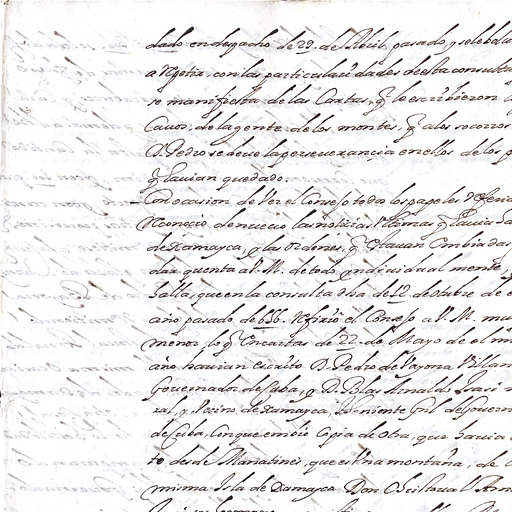 dado en despacho de 29. de Abril pasado, y se le bol
a Repetir, con las particularidades de esta consulta
se manifiesta de las Cartas, q̃ le escribieron
Cavos, de la gente de los montes, q̃ a los socorros
D. Pedro se deve la perseverançia en ellos de los p
q̃ havian quedado.
Con ocasion de Ver el Consejo todos los papeles Referi
Reconoció de nuevo las notiçias Vltimas q̃ havia
de Xamayca, y las ordenes, q̃ estavan embiadas,
dar quenta a V. M. de todo yndividualmente,
halla, que en la consulta dha de 12 de otubre de
año pasado de 656. Refirió el Consejo a V. M. mu
menor, lo q̃ en cartas de 22 de Mayo de el mi
año havian escrito D. Pedro de Vayona Villan
Governador de Cuba, y D. Blas Arnaldo Isasi
ral, y Vezino de Xamayca, Theniente Gnl de Govern
de Cuba, Con que embió Copia de otra, que havia
to desde Mariatinei, que es Vna montaña, de
misma Isla de Xamayca Don Christoual Arn